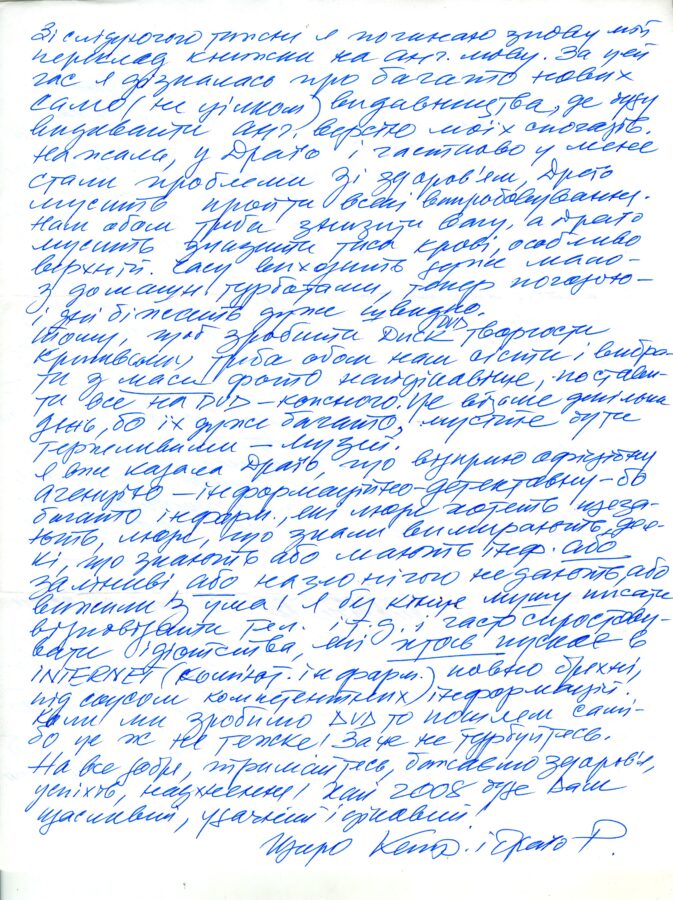 Зі слідуючого тижні я починаю знову мій
переклад книжки на анг. мову. За цей
час я дізналась про багато нових
само (не цілком) видавництва, де буду
видавати анг. версію моїх спогадів.
На жаль, у Драґо і частково у мене
стали проблеми зі здоров'ям, Драґо
мусить пройти всякі випробовування.
Нам обом треба знизити вагу, а Драґо
мусить знизити тиск крові, особливо
верхній. Часу виходить дуже мало –
з домашн. турботами, тепер погодою –
і дні біжать дуже швидко.
Тому, щоб зробити Диск DVD творчости
треба обом нам сісти і вибра-
ти з маси фото найцікавіше, постави-
ти все на DVD – кожного. Це візьме декілька
день, бо їх дуже багато, мусите бути
терпеливими –
Я вже казала Драґо, що відкрию офіційну
агенцію – інформаційно-детективну – бо
багато інформ., які люди хотять
люди, що знали вимирають, дея-
кі, що знають або мають інф. або
або назло нічого не дають, або
вижили із ума! Я без кінця мушу писати
відповідати тел. і т.д. і часто спростову-
вати ідіотства, які хтось пускає в
INTERNET (комп'ют. інформ.) повно брехні,
під соусом компетентних інформацій.
Коли ми зробимо DVD то пошлем самі –
бо це ж не тежке! За це не турбуйтесь.
На все добре, тримайтесь, бажаємо здоров'я,
успіхів, натхнення! Хай 2008 буде Вам
щасливий, удачний і цікавий!
Щиро і Драґо Р.